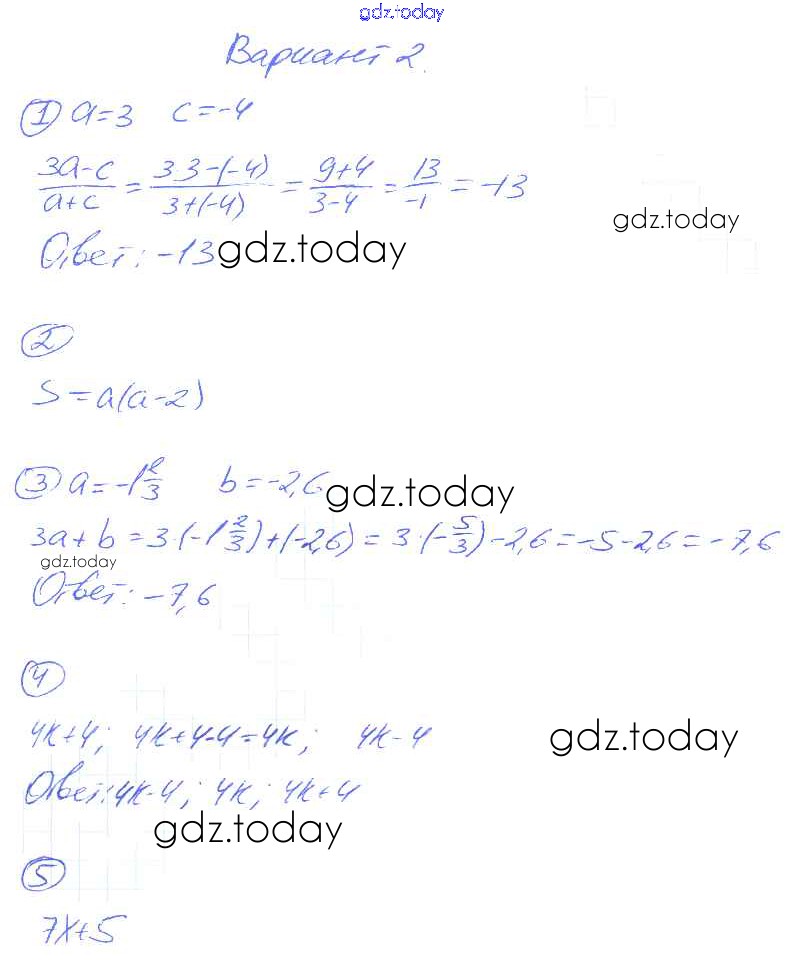 gdz.today
Вариант 2.
① a=3 c=-4
(3a-c)/(a+c) = (3·3-(-4))/(3+(-4)) = (9+4)/(3-4) = 13/-1 = -13
gdz.today
Ответ: -13 gdz.today
②
S=a(a-2)
③ a=-1 2/3 b=-2,6 gdz.today
3a+b=3·(-1 2/3)+(-2,6)=3·(-5/3)-2,6=-5-2,6=-7,6
gdz.today
Ответ: -7,6
④
4к+4; 4к+4-4=4к; 4к-4 gdz.today
Ответ: 4к-4; 4к; 4к+4
gdz.today
⑤
7x+5